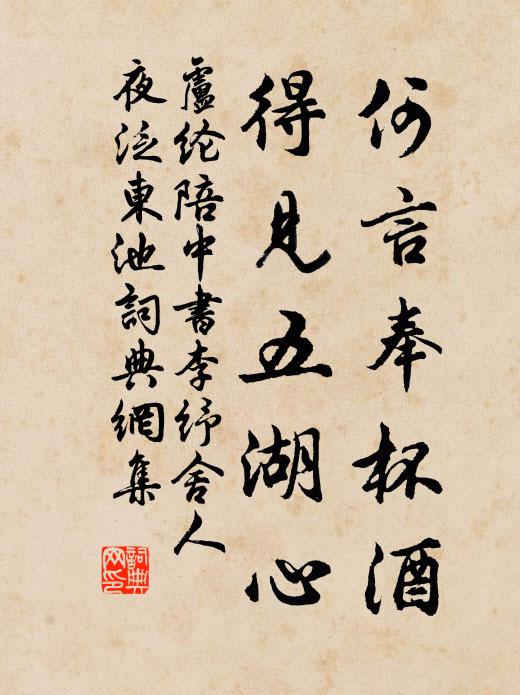 何言奉杯酒
得見五湖心
盧纶陪中書李纾舍人
夜泛東池詞典網集
詞典
网印